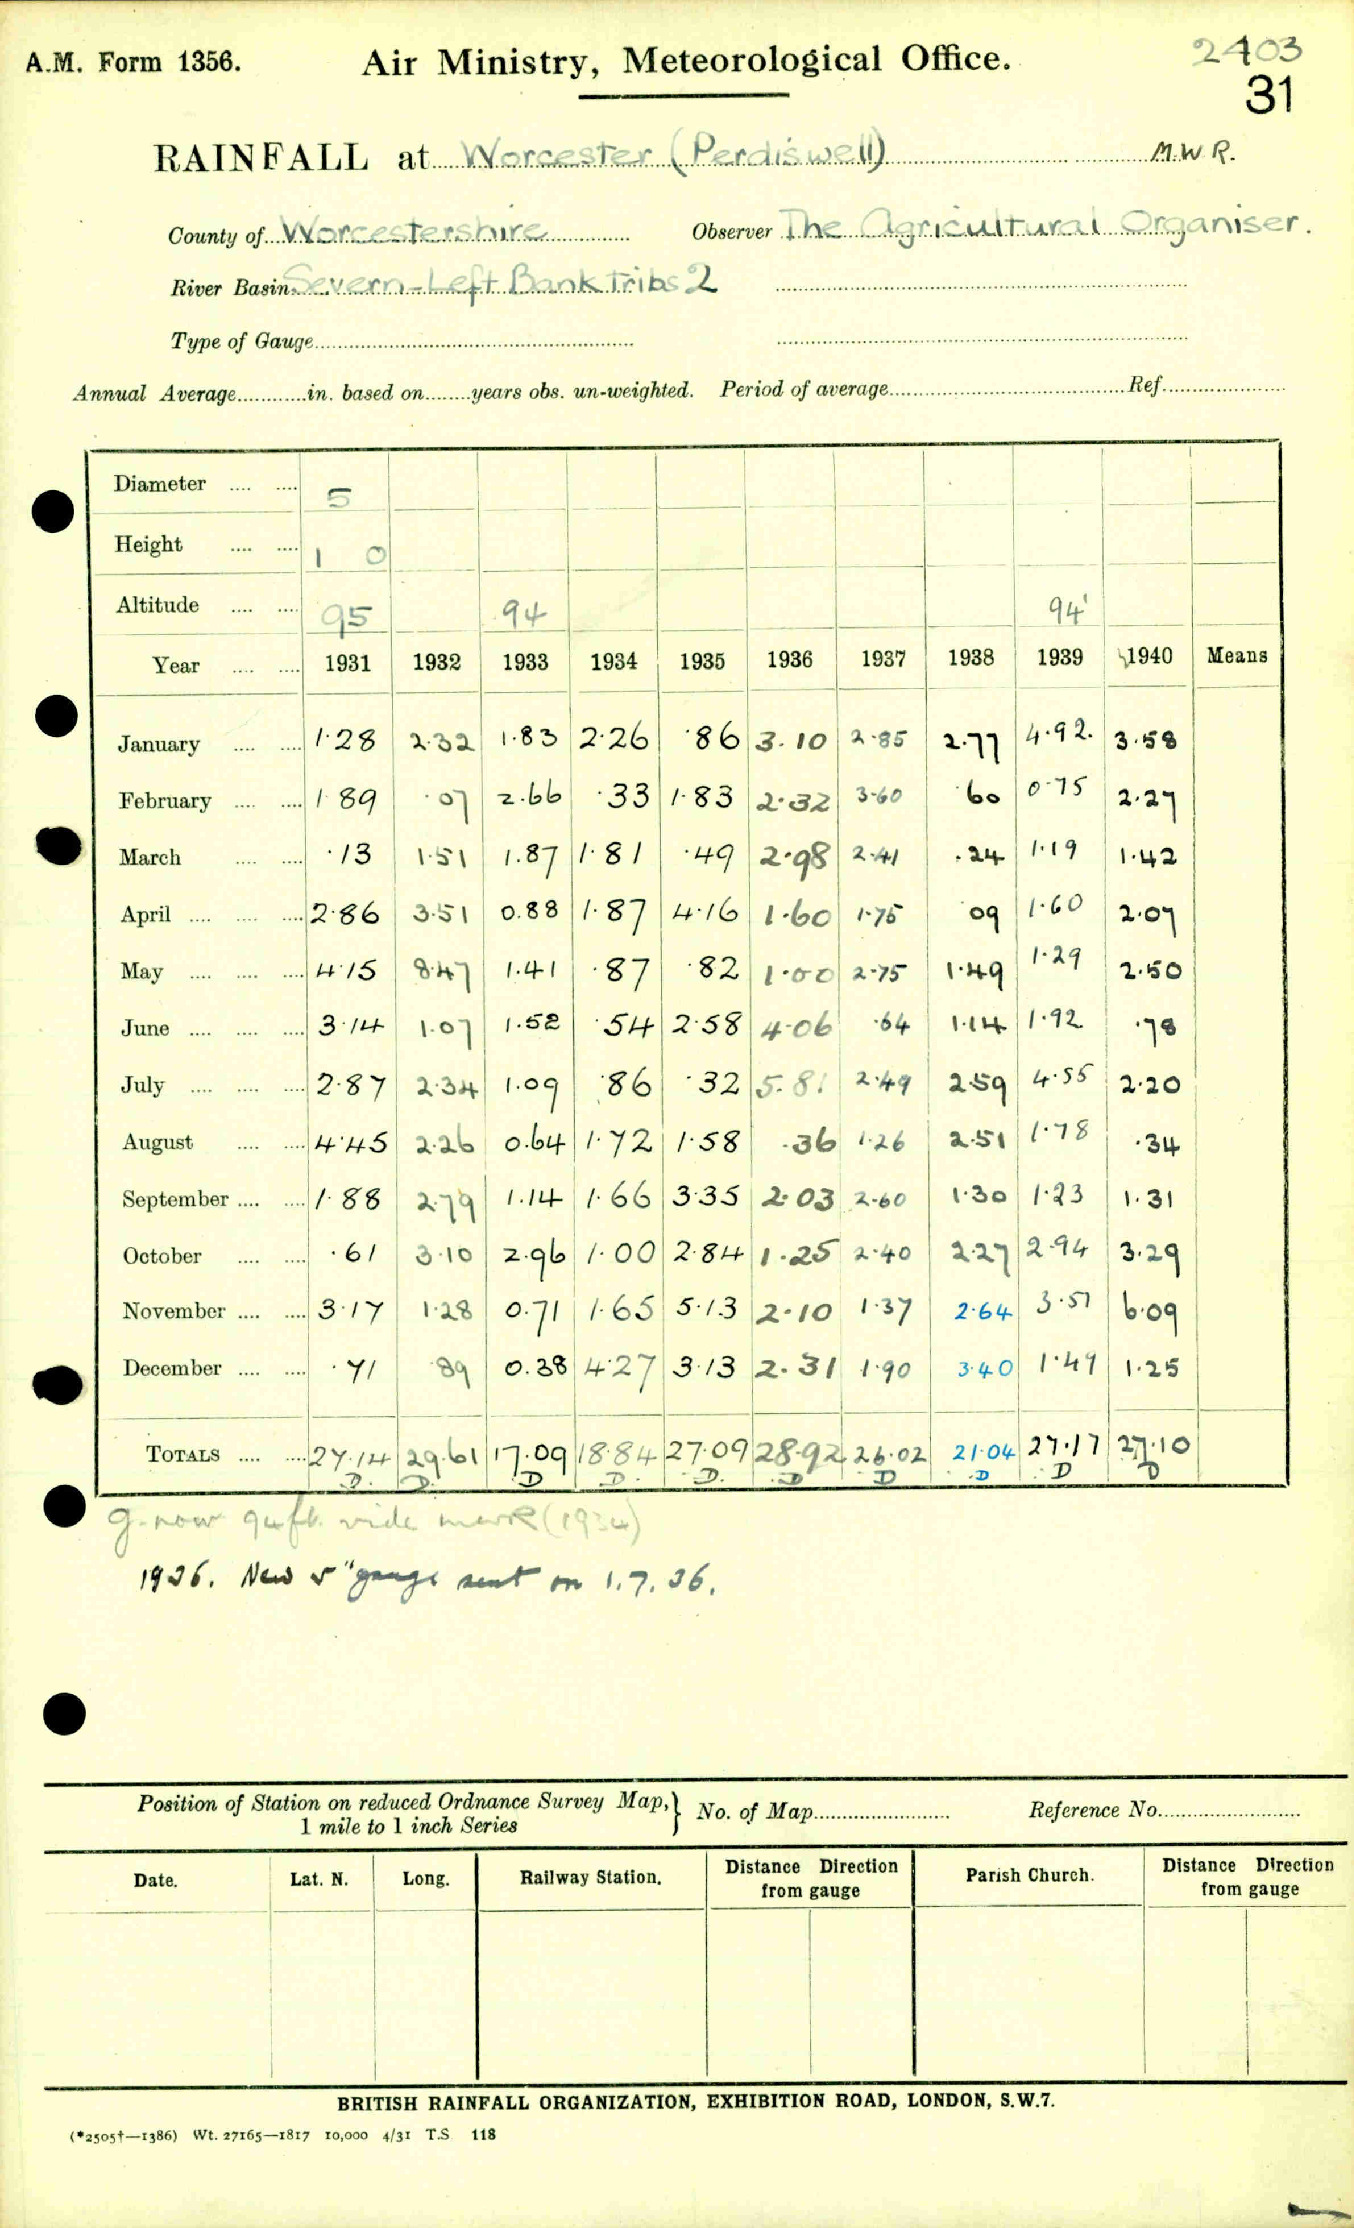 A.M. Form 1356. Air Ministry, Meteorological Office. 2403
31
RAINFALL at Worcester (Perdiswell) M.W.R.
County of Worcestershire Observer The Agricultural Organiser.
River Basin Severn-Left Bank Tribs 2
Type of Gauge
Annual Average in. based on years obs. un-weighted. Period of average Ref.
Diameter 5
Height 1 0
Altitude 95 94 94'
Year 1931 1932 1933 1934 1935 1936 1937 1938 1939 1940 Means
January 1.28 2.32 1.83 2.26 .86 3.10 2.85 2.77 4.92. 3.58
February 1.89 .07 2.66 .33 1.83 2.32 3.60 .60 0.75 2.27
March .13 1.51 1.87 1.81 .49 2.98 2.41 .24 1.19 1.42
April 2.86 3.51 0.88 1.87 4.16 1.60 1.75 .09 1.60 2.07
May 4.15 8.47 1.41 .87 .82 1.00 2.75 1.49 1.29 2.50
June 3.14 1.07 1.52 .54 2.58 4.06 .64 1.14 1.92 .78
July 2.87 2.34 1.09 .86 .32 5.81 2.49 2.59 4.55 2.20
August 4.45 2.26 0.64 1.72 1.58 .36 1.26 2.51 1.78 .34
September 1.88 2.79 1.14 1.66 3.35 2.03 2.60 1.30 1.23 1.31
October .61 3.10 2.96 1.00 2.84 1.25 2.40 2.27 2.94 3.29
November 3.17 1.28 0.71 1.65 5.13 2.10 1.37 2.64 3.51 6.09
December .71 .89 0.38 4.27 3.13 2.31 1.90 3.40 1.49 1.25
TOTALS 27.14 29.61 17.09 18.84 27.09 28.92 26.02 21.04 27.17 27.10
D. D. D D. D. D D D D D
g. now 94 ft. vide (1934)
1936. New 5" gauge sent on 1.7.36.
Position of Station on reduced Ordnance Survey Map, } No. of Map Reference No.
1 mile to 1 inch Series
Date. Lat. N. Long. Railway Station. Distance Direction from gauge Parish Church. Distance Direction from gauge
BRITISH RAINFALL ORGANIZATION, EXHIBITION ROAD, LONDON, S.W.7.
(*2505†—1386) Wt. 27165—1817 10,000 4/31 T.S 118